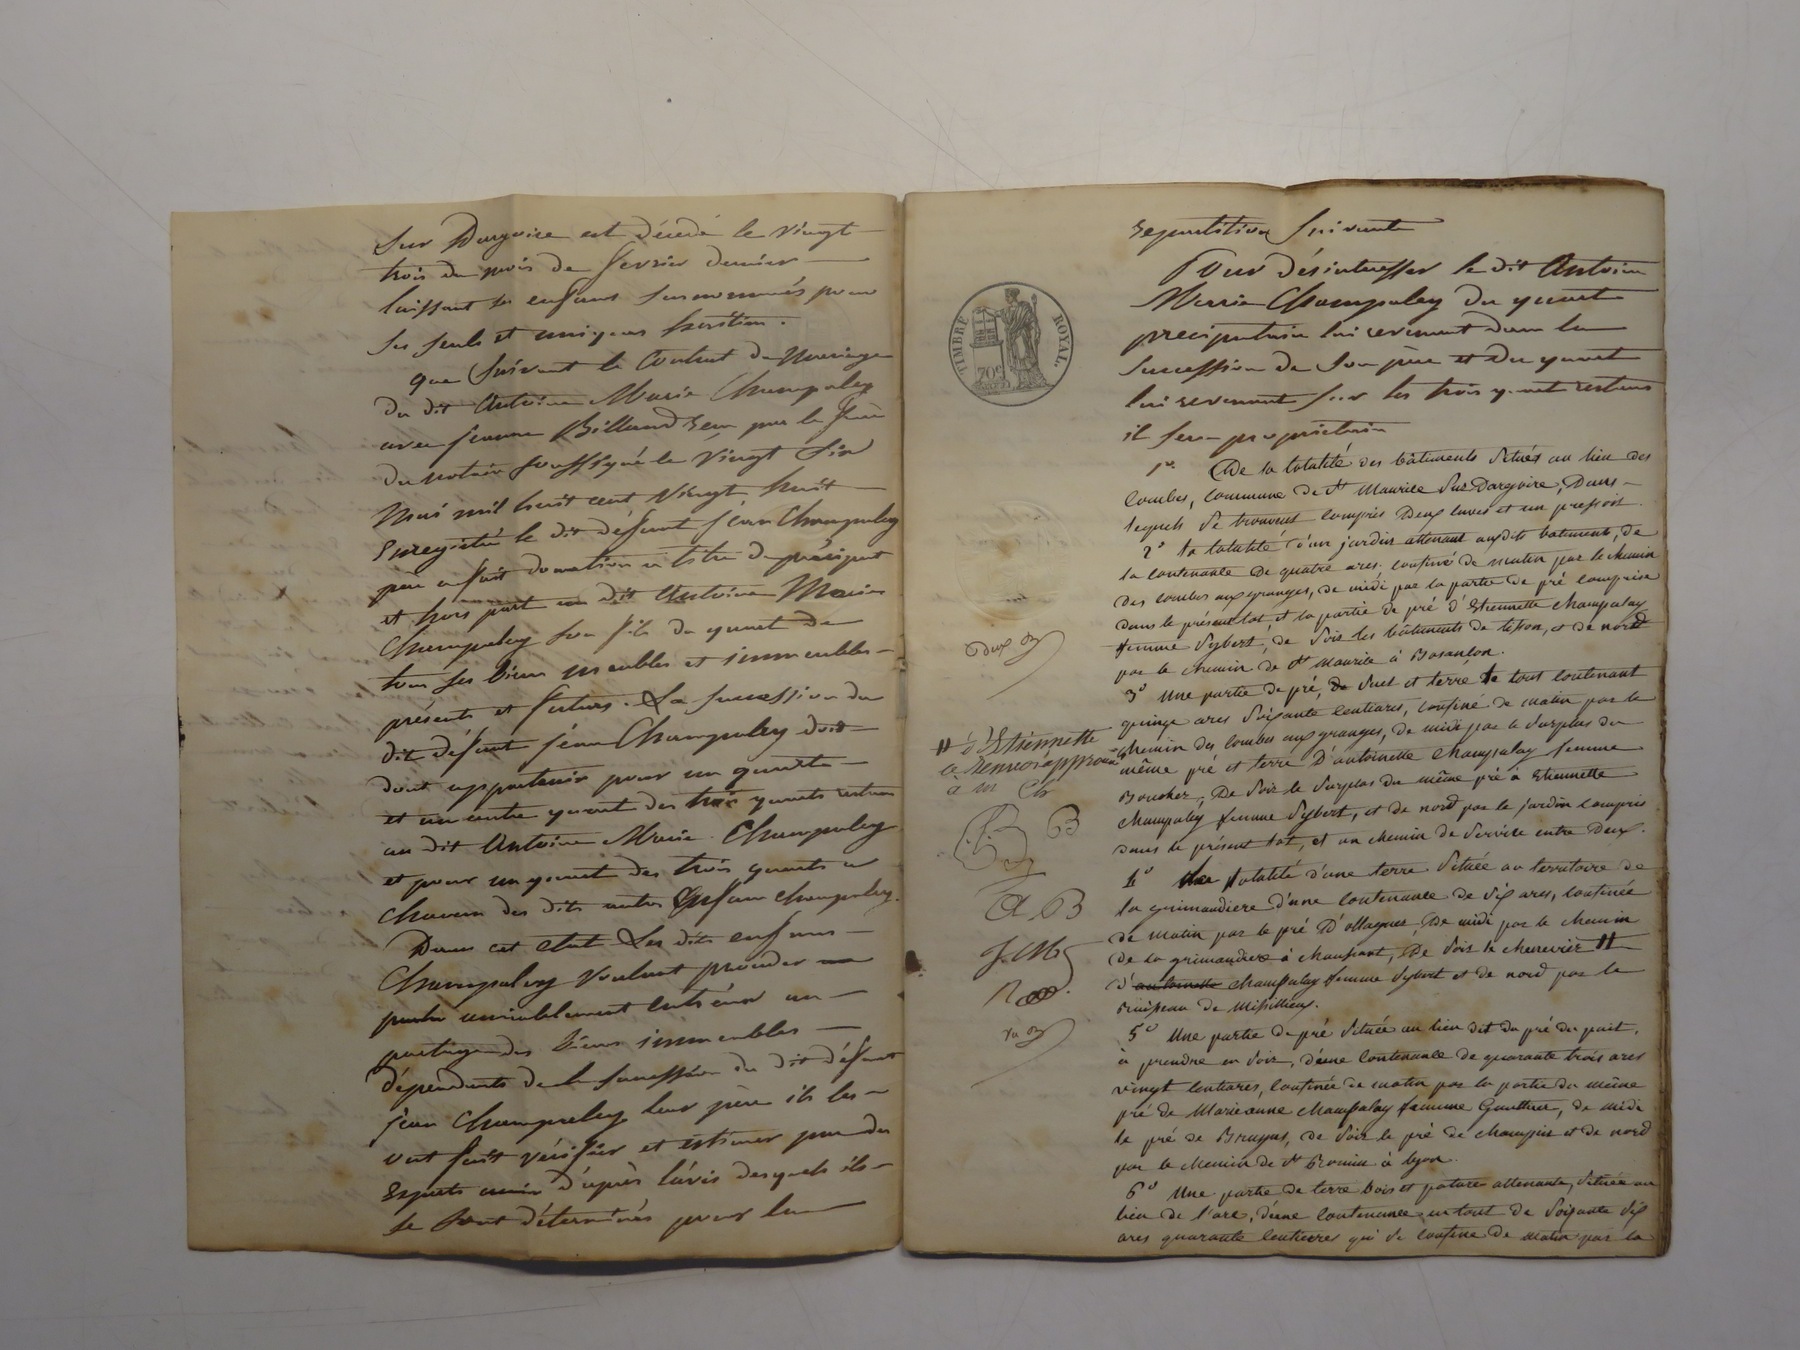 sur Dargoire est décédé le vingt
trois du mois de fevrier dernier
laissant ses enfans susnommés pour
ses seuls et uniques héritiers.
que suivant le Contrat de Mariage
du dit Antoine Marie Champalay
avec jeanne Billaud reçu par le
du notaire soussigné le vingt six
Mai mil huit cent vingt huit
Enregistré le dit défunt jean Champalay
père a fait donation à titre de préciput
et hors part au dit Antoine Marie
Champalay son fils du quart de
tous ses biens meubles et immeubles
présents et futurs. La succession du
dit défunt jean Champalay doit
donc appartenir pour un quart
et un autre quart des trois quarts restans
au dit Antoine Marie Champalay
et pour un quart des trois quarts à
chacun des dits autres Enfans Champalay.
Dans cet état Les dits enfans
Champalay voulant procéder
amiablement entr'eux au
partage des biens immeubles
dépendants de la succession du dit défunt
jean Champalay leur père ils les
ont fait vérifier et estimer par des
Experts amis d'après l'avis desquels ils
se sont déterminés pour la
repartition suivante
Pour désinteresser le dit Antoine
Marie Champalay du quart
preciputaire lui revenant dans la
succession de son père et du quart
lui revenant sur les trois quart restans
il sera proprietaire
1º. De la totalité des bâtiments situés au lieu des
Combes, commune de St Maurice sur Dargoire, Dans
lequels se trouvent compris Deux cuves et un pressoir.
2º la totalité d'un jardin attenant auxdits batiments, de
la contenance De quatre ares confiné de matin par le chemin
des combes aux granges, de midi par la partie de pré comprise
dans le présent lot, et la partie de pré d'Etiennette Champalay
femme Sybert, de soir les bâtiments de tisson, et de nord
par le chemin de St Maurice à Basançon.
3º Une partie de pré, de suel et terre le tout contenant
quinze ares soixante centiares, confiné de matin par le
chemin des combes aux granges, de midi par le surplus du
même pré et terre D'antoinette champalay femme
Boucher, De soir le surplus du même pré à Etiennette
Champalay femme Sybert, et de nord par le jardin compris
dans le présent lot, et un chemin de service entre Deux.
4º totalité d'une terre située au territoire de
la grimaudiere d'une contenance de dix ares, confinée
de matin par le pré D'ollagnes, De midi par le chemin
de la grimaudiere à chaussant, De soir le chenevier #
d'antoinette champalay femme Sybert et de nord par le
Ruisseau de Misillieux.
5º Une partie de pré située au lieu dit du pré du puit,
à prendre en soir, d'une contenance de quarante trois ares
vingt centiares, confinée de matin par la partie du même
pré de Marieanne champalay femme Gauthier, de midi
le pré de Bruyas, de soir le pré de champin et de nord
par le chemin de St Romain à lyon.
6º Une partie de terre bois et pature attenante, située au
lieu de l'are, d'une contenance en tout de soixante dix
ares quarante centiares qui se confine de matin par la
TIMBRE ROYAL.
70c
# d'Etiennette
ce renvoi approuvé
a m Ch
B
A B
J. M